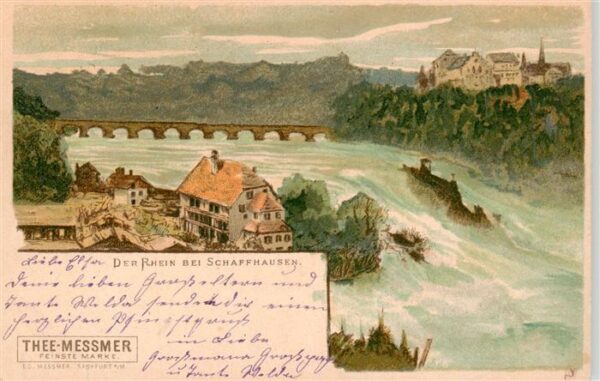 DER RHEIN BEI SCHAFFHAUSEN.
Liebe Elsa
Deine lieben Großeltern und
Tante Welda senden dir einen
herzlichen Pfingstgruß
in Liebe
Großmama Großpapa
u Tante Welda
THEE-MESSMER
FEINSTE MARKE.
ED. MESSMER. FRANKFURT A/M.